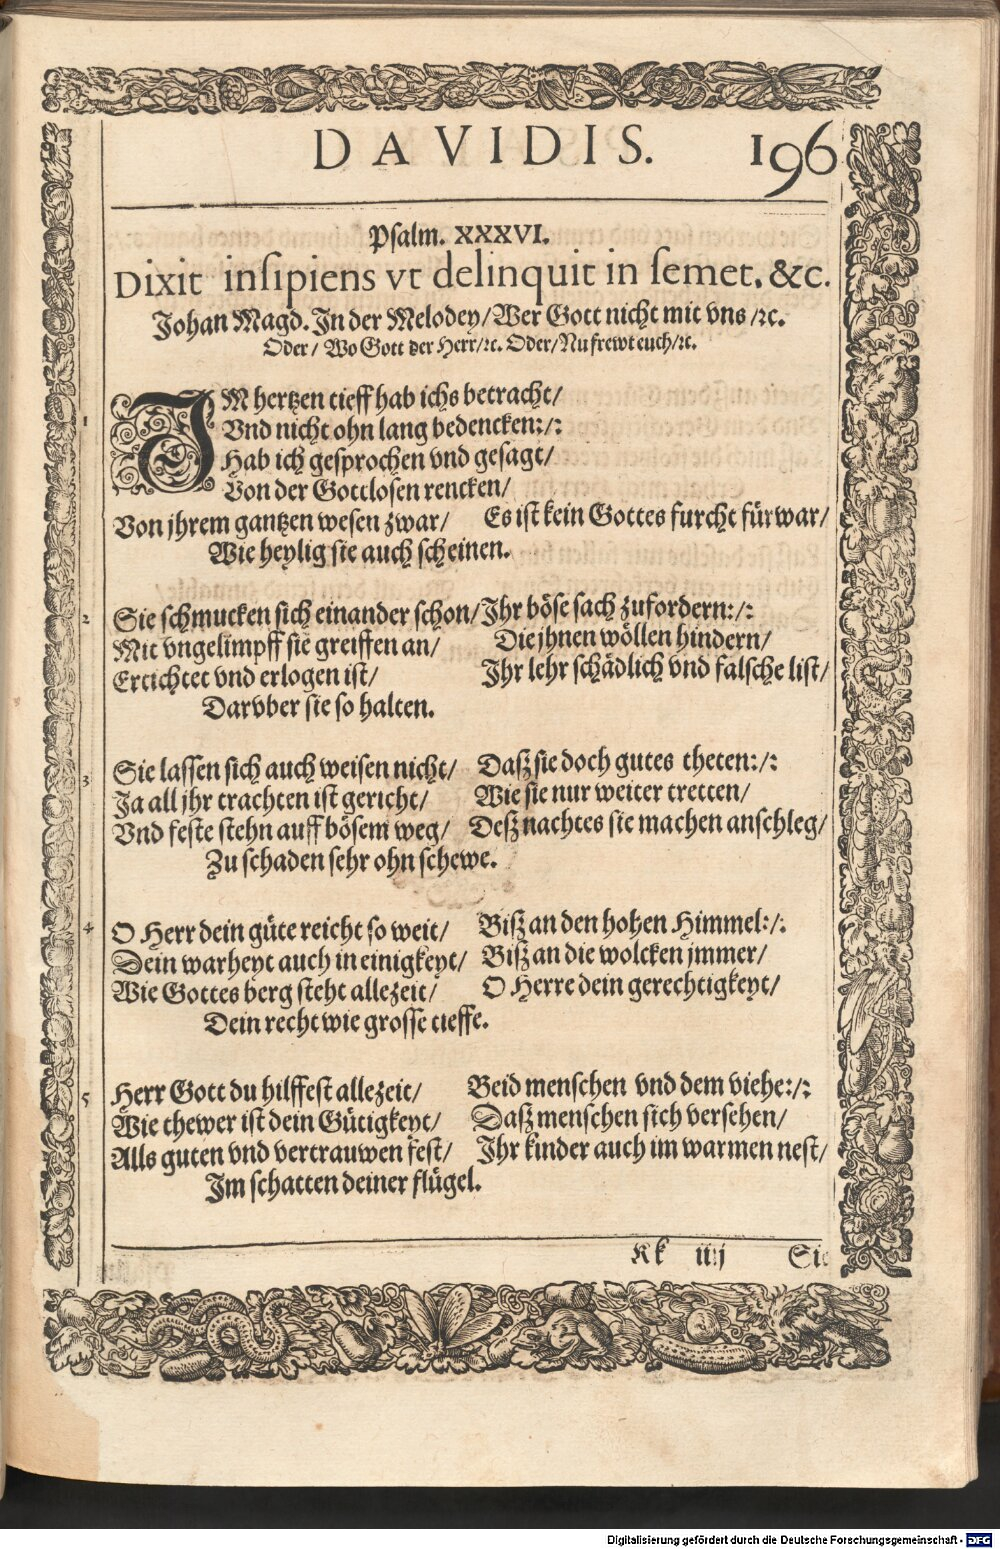 DAVIDIS. 196
Psalm. XXXVI.
Dixit insipiens vt delinquit in semet. &c.
Johan Magd. In der Melodey/ Wer Gott nicht mit vns /ꝛc.
Oder/ Wo Gott der Herr/ꝛc. Oder/ Nu frewt euch/ꝛc.
1 IM hertzen tieff hab ichs betracht/
Vnd nicht ohn lang bedencken:/:
Hab ich gesprochen vnd gesagt/
Von der Gottlosen rencken/
Von jhrem gantzen wesen zwar/ Es ist kein Gottes furcht fürwar/
Wie heylig sie auch scheinen.
2 Sie schmucken sich einander schon/ Ihr böse sach zufordern:/:
Mit vngelimpff sie greiffen an/ Die jhnen wöllen hindern/
Ertichtet vnd erlogen ist/ Ihr lehr schädlich vnd falsche list/
Darvber sie so halten.
3 Sie lassen sich auch weisen nicht/ Daß sie doch gutes theten:/:
Ja all jhr trachten ist gericht/ Wie sie nur weiter tretten/
Vnd feste stehn auff bösem weg/ Deß nachtes sie machen anschleg/
Zu schaden sehr ohn schewe.
4 O Herr dein güte reicht so weit/ Biß an den hohen Himmel:/:
Dein warheyt auch in einigkeyt/ Biß an die wolcken jmmer/
Wie Gottes berg steht allezeit/ O Herre dein gerechtigkeyt/
Dein recht wie grosse tieffe.
5 Herr Gott du hilffest allezeit/ Beid menschen vnd dem viehe:/:
Wie thewer ist dein Gütigkeyt/ Daß menschen sich versehen/
Alls guten vnd vertrauwen fest/ Ihr kinder auch im warmen nest/
Im schatten deiner flügel.
Kk iiij Sie
Digitalisierung gefördert durch die Deutsche Forschungsgemeinschaft - DFG